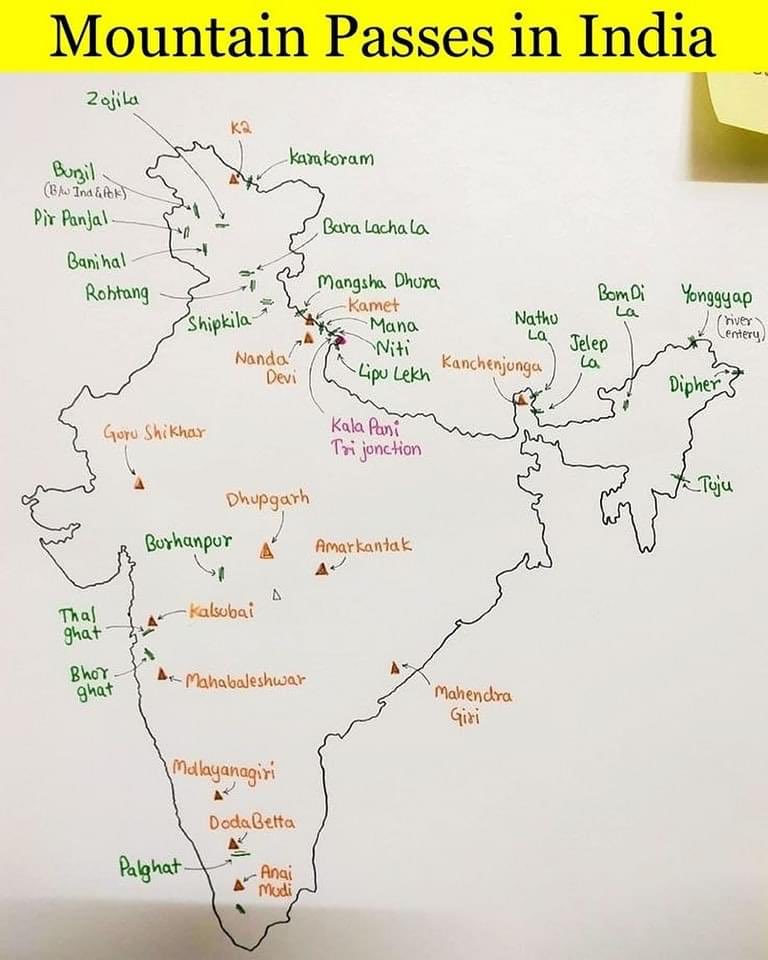 Mountain Passes in India
Zojila
K2
Karakoram
Burzil
(B/w Ind & Pok)
Pir Panjal
Banihal
Rohtang
Bara Lacha La
Mangsha Dhura
Kamet
Shipkila
Mana
Niti
Nanda
Devi
Lipu Lekh
Kala Pani
Tri jonction
Kanchenjunga
Nathu
La
Jelep
La
BomDi
La
Yonggyap
(river
entery)
Dipher
Tuju
Goru Shikhar
Dhupgarh
Burhanpur
Amarkantak
Thal
ghat
Kalsubai
Bhor
ghat
Mahabaleshwar
Mahendra
Giri
Mullayanagiri
DodaBetta
Palghat
Anai
Mudi